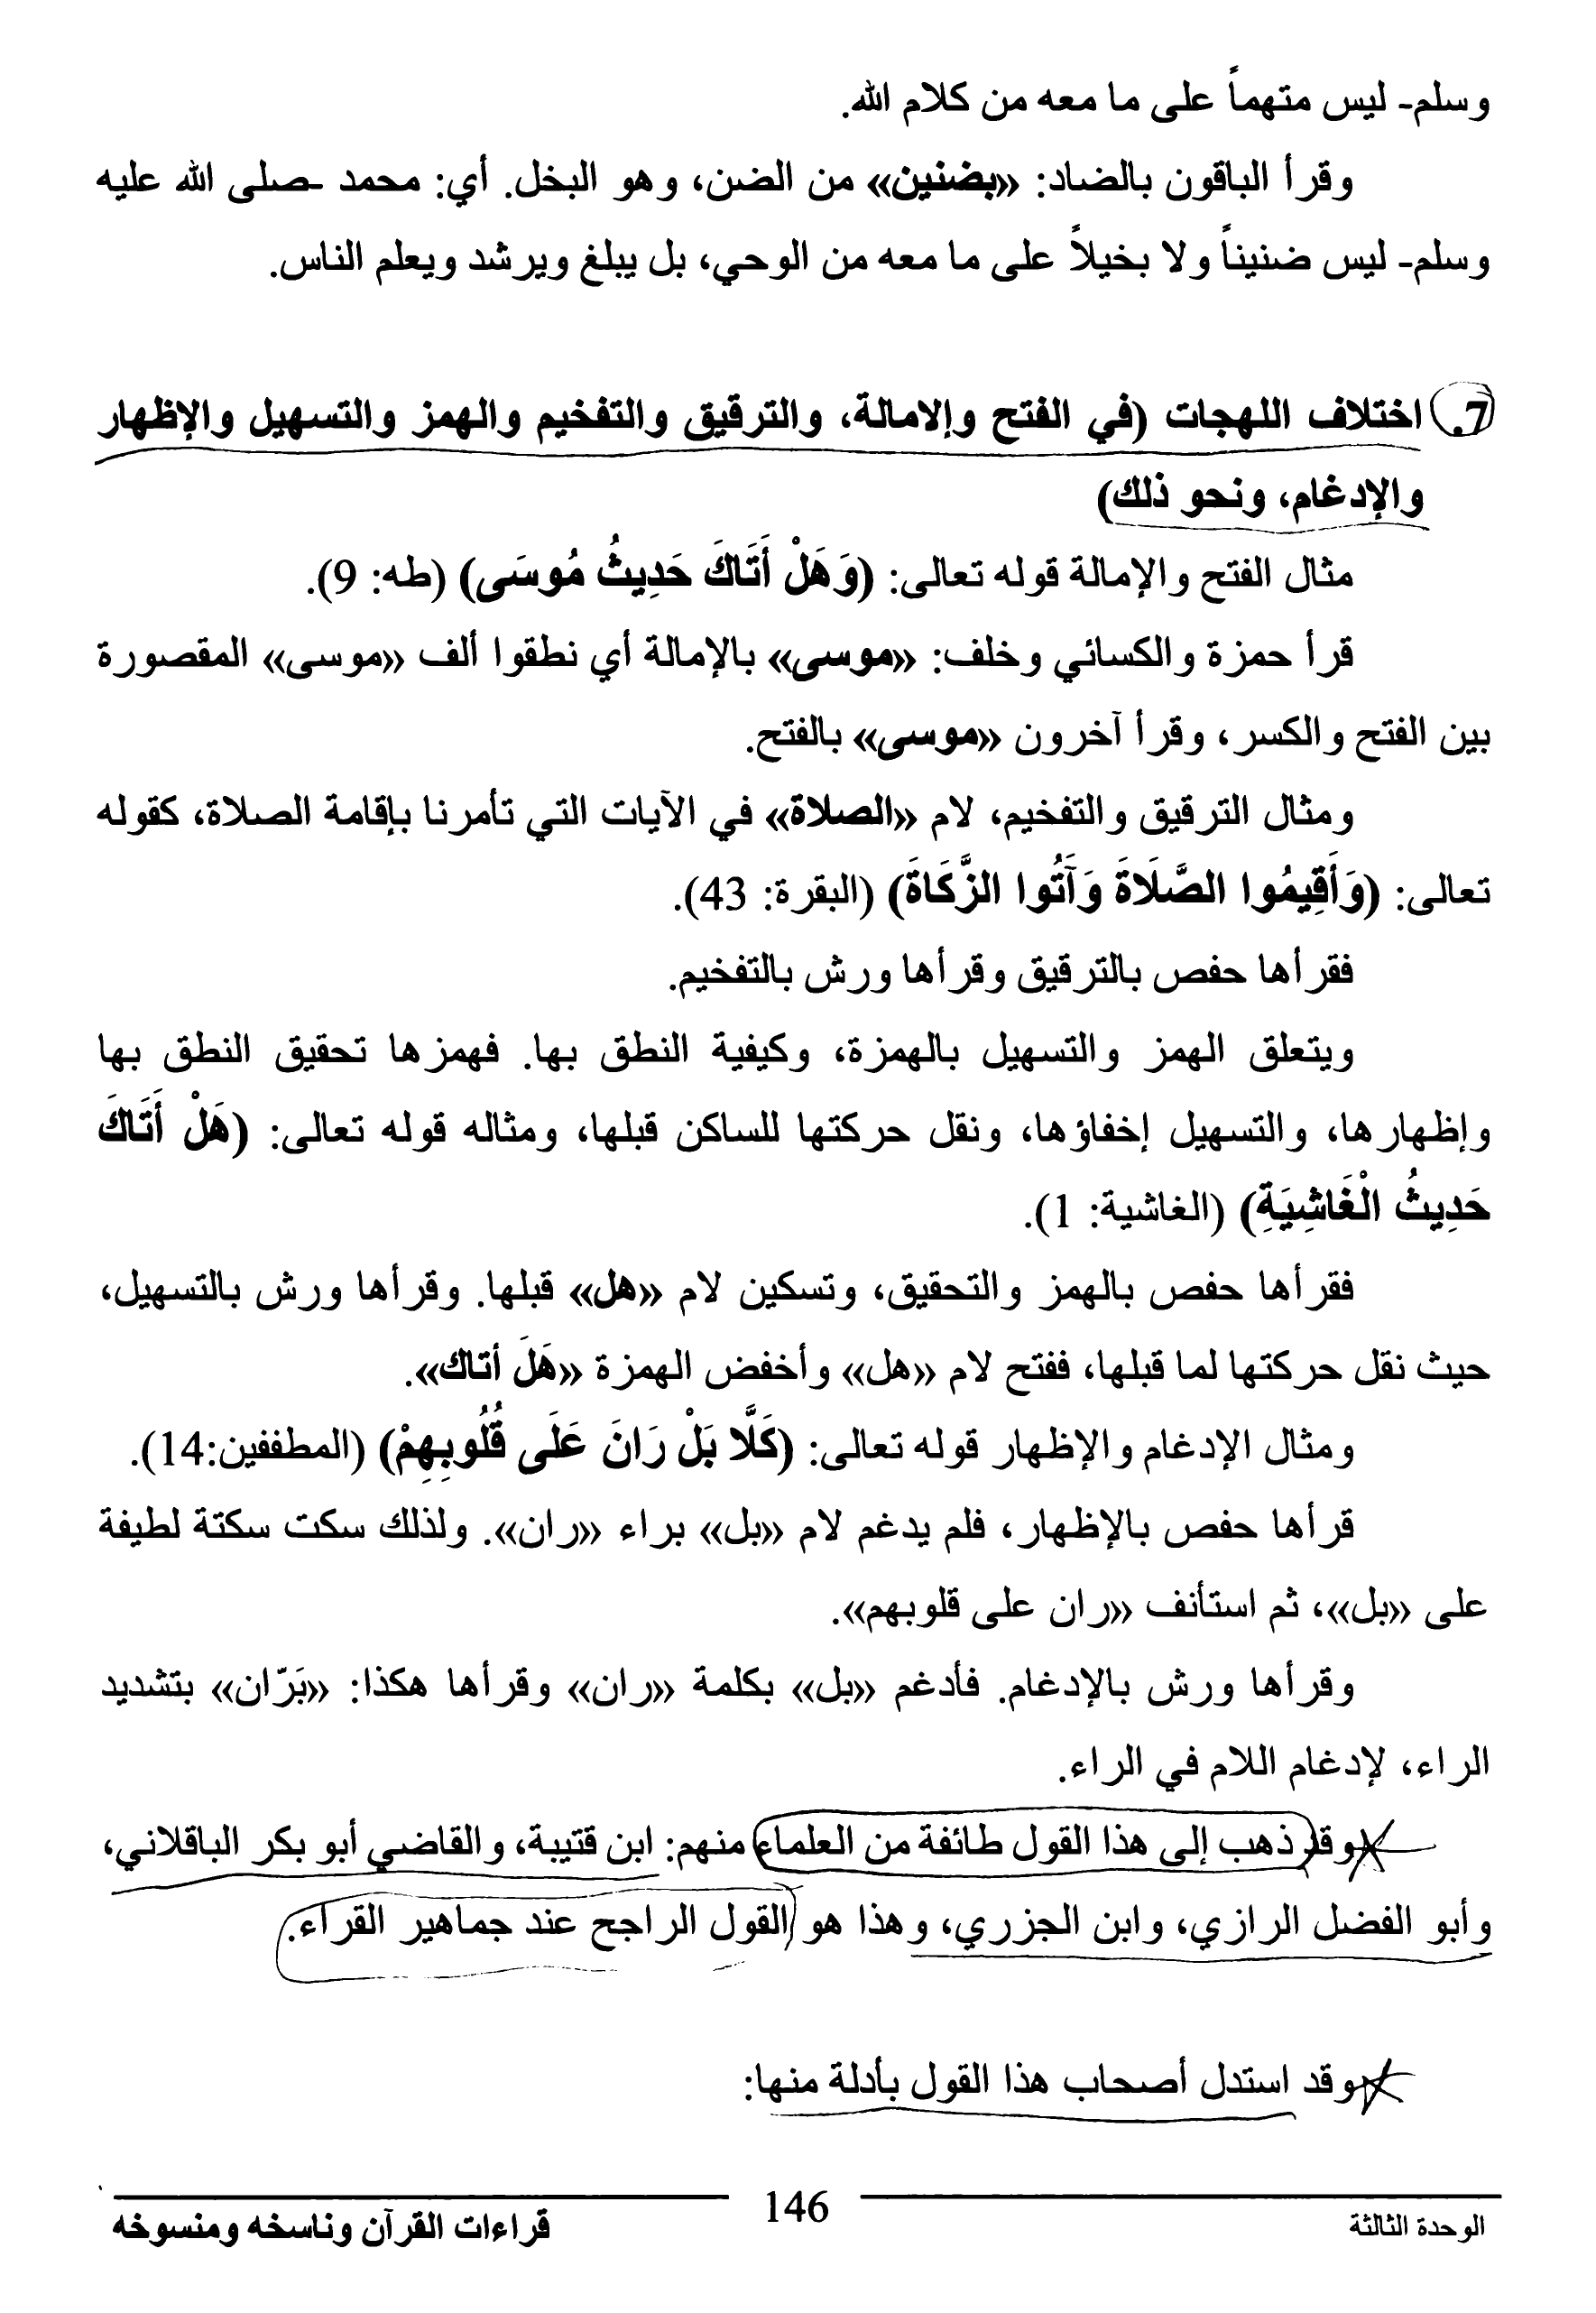 وسلم- ليس متهماً على ما معه من كلام الله.
وقرأ الباقون بالضاد: «بضنين» من الضن، وهو البخل. أي: محمد -صلى الله عليه
وسلم- ليس ضنيناً ولا بخيلاً على ما معه من الوحي، بل يبلغ ويرشد ويعلم الناس.
7. اختلاف اللهجات (في الفتح وإلامالة، والترقيق والتفخيم والهمز والتسهيل والإظهار
والإدغام، ونحو ذلك)
مثال الفتح والإمالة قوله تعالى: (وَهَلْ أَتَاكَ حَدِيثُ مُوسَى) (طه: 9).
قرأ حمزة والكسائي وخلف: «موسى» بالإمالة أي نطقوا ألف «موسى» المقصورة
بين الفتح والكسر، وقرأ آخرون «موسى» بالفتح.
ومثال الترقيق والتفخيم، لام «الصلاة» في الآيات التي تأمرنا بإقامة الصلاة، كقوله
تعالى: (وَأَقِيمُوا الصَّلَاةَ وَآَتُوا الزَّكَاةَ) (البقرة: 43).
فقرأها حفص بالترقيق وقرأها ورش بالتفخيم.
ويتعلق الهمز والتسهيل بالهمزة، وكيفية النطق بها. فهمزها تحقيق النطق بها
وإظهارها، والتسهيل إخفاؤها، ونقل حركتها للساكن قبلها، ومثاله قوله تعالى: (هَلْ أَتَاكَ
حَدِيثُ الْغَاشِيَةِ) (الغاشية: 1).
فقرأها حفص بالهمز والتحقيق، وتسكين لام «هل» قبلها. وقرأها ورش بالتسهيل،
حيث نقل حركتها لما قبلها، ففتح لام «هل» وأخفض الهمزة «هَلَ أتاك».
ومثال الإدغام والإظهار قوله تعالى: (كَلَّا بَلْ رَانَ عَلَى قُلُوبِهِمْ) (المطففين:14).
قرأها حفص بالإظهار، فلم يدغم لام «بل» براء «ران». ولذلك سكت سكتة لطيفة
على «بل»، ثم استأنف «ران على قلوبهم».
وقرأها ورش بالإدغام. فأدغم «بل» بكلمة «ران» وقرأها هكذا: «بَرّان» بتشديد
الراء، لإدغام اللام في الراء.
وقد ذهب إلى هذا القول طائفة من العلماء منهم: ابن قتيبة، والقاضي أبو بكر الباقلاني،
وأبو الفضل الرازي، وابن الجزري، وهذا هو القول الراجح عند جماهير القراء.
وقد استدل أصحاب هذا القول بأدلة منها:
الوحدة الثالثة 146 قراءات القرآن وناسخه ومنسوخه